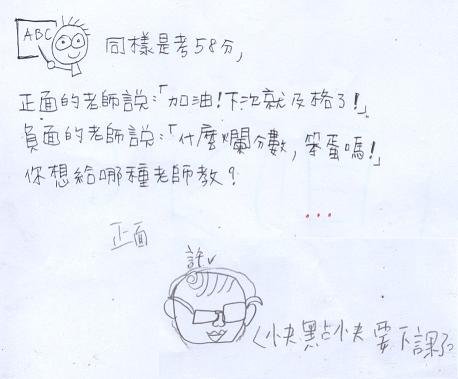 ABC
同樣是考58分,
正面的老師說:「加油!下次就及格了!」
負面的老師說:「什麼爛分數,笨蛋嗎!」
你想給哪種老師教?
...
正面
快點快要下課了